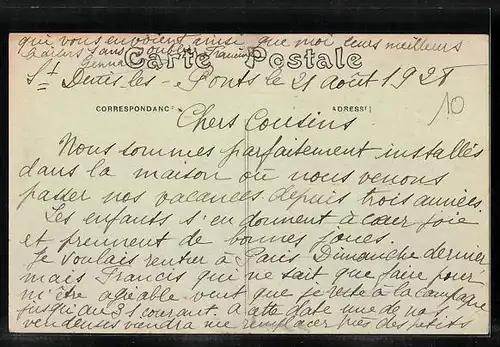 qui vous envoient ainsi que moi leurs meilleurs
baisers sans oublier Francis
Carte Postale
Germa
St Denis les-Ponts le 21 août 1928
CORRESPONDANCE ADRESSE
10
Chers Cousins
Nous sommes parfaitement installés
dans la maison où nous venons
passer nos vacances depuis trois années.
Les enfants s'en donnent à cœur joie
et prennent de bonnes joues.
Je voulais rentrer à Paris Dimanche dernier
mais Francis qui ne sait que faire pour
m'être agréable veut que je reste à la campagne
jusqu'au 31 courant. A cette date une de nos
vendeuses viendra me remplacer près des petits